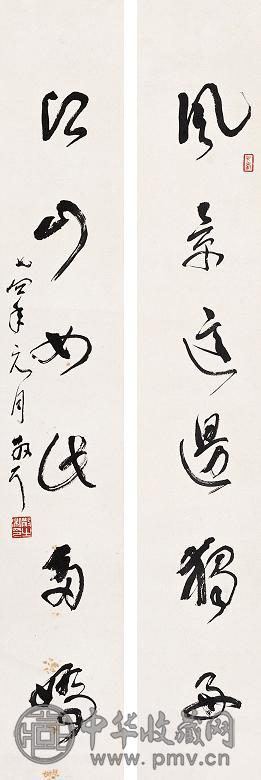 風景這邊獨好
江山如此多嬌
七四年元月散耳
中华收藏网
www.pmv.cn